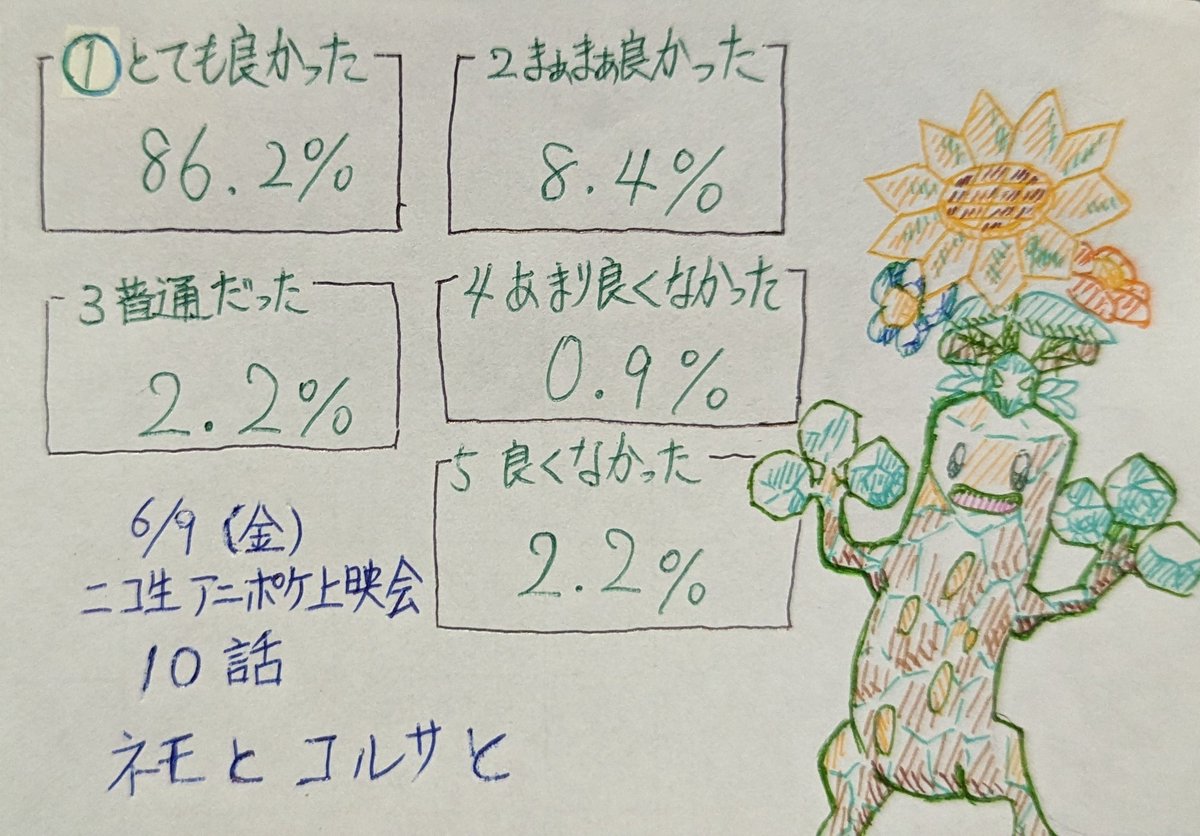 ①とても良かった
86.2%
2まぁまぁ良かった
8.4%
3普通だった
2.2%
4あまり良くなかった
0.9%
5良くなかった
2.2%
6/9(金)
ニコ生アニポケ上映会
10話
ネモとコルサと